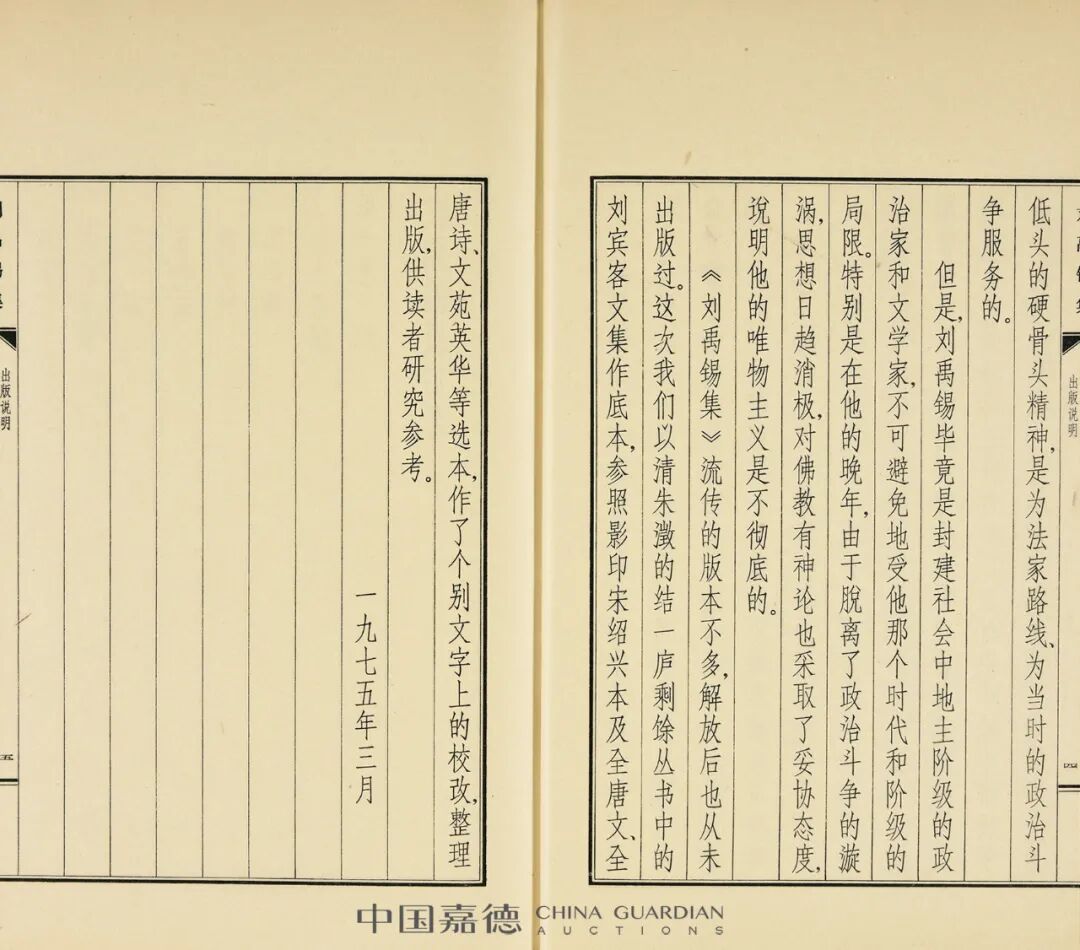 低头的硬骨头精神，是为法家路线、为当时的政治斗
争服务的。
但是，刘禹锡毕竟是封建社会中地主阶级的政
治家和文学家，不可避免地受他那个时代和阶级的
局限。特别是在他的晚年，由于脱离了政治斗争的漩
涡，思想日趋消极，对佛教有神论也采取了妥协态度，
说明他的唯物主义是不彻底的。
《刘禹锡集》流传的版本不多，解放后也从未
出版过。这次我们以清朱澂的结一庐剩馀丛书中的
刘宾客文集作底本，参照影印宋绍兴本及全唐文、全
出版说明
四
唐诗、文苑英华等选本，作了个别文字上的校改，整理
出版，供读者研究参考。
一九七五年三月
出版说明
五
中国嘉德 CHINA GUARDIAN
AUCTIONS